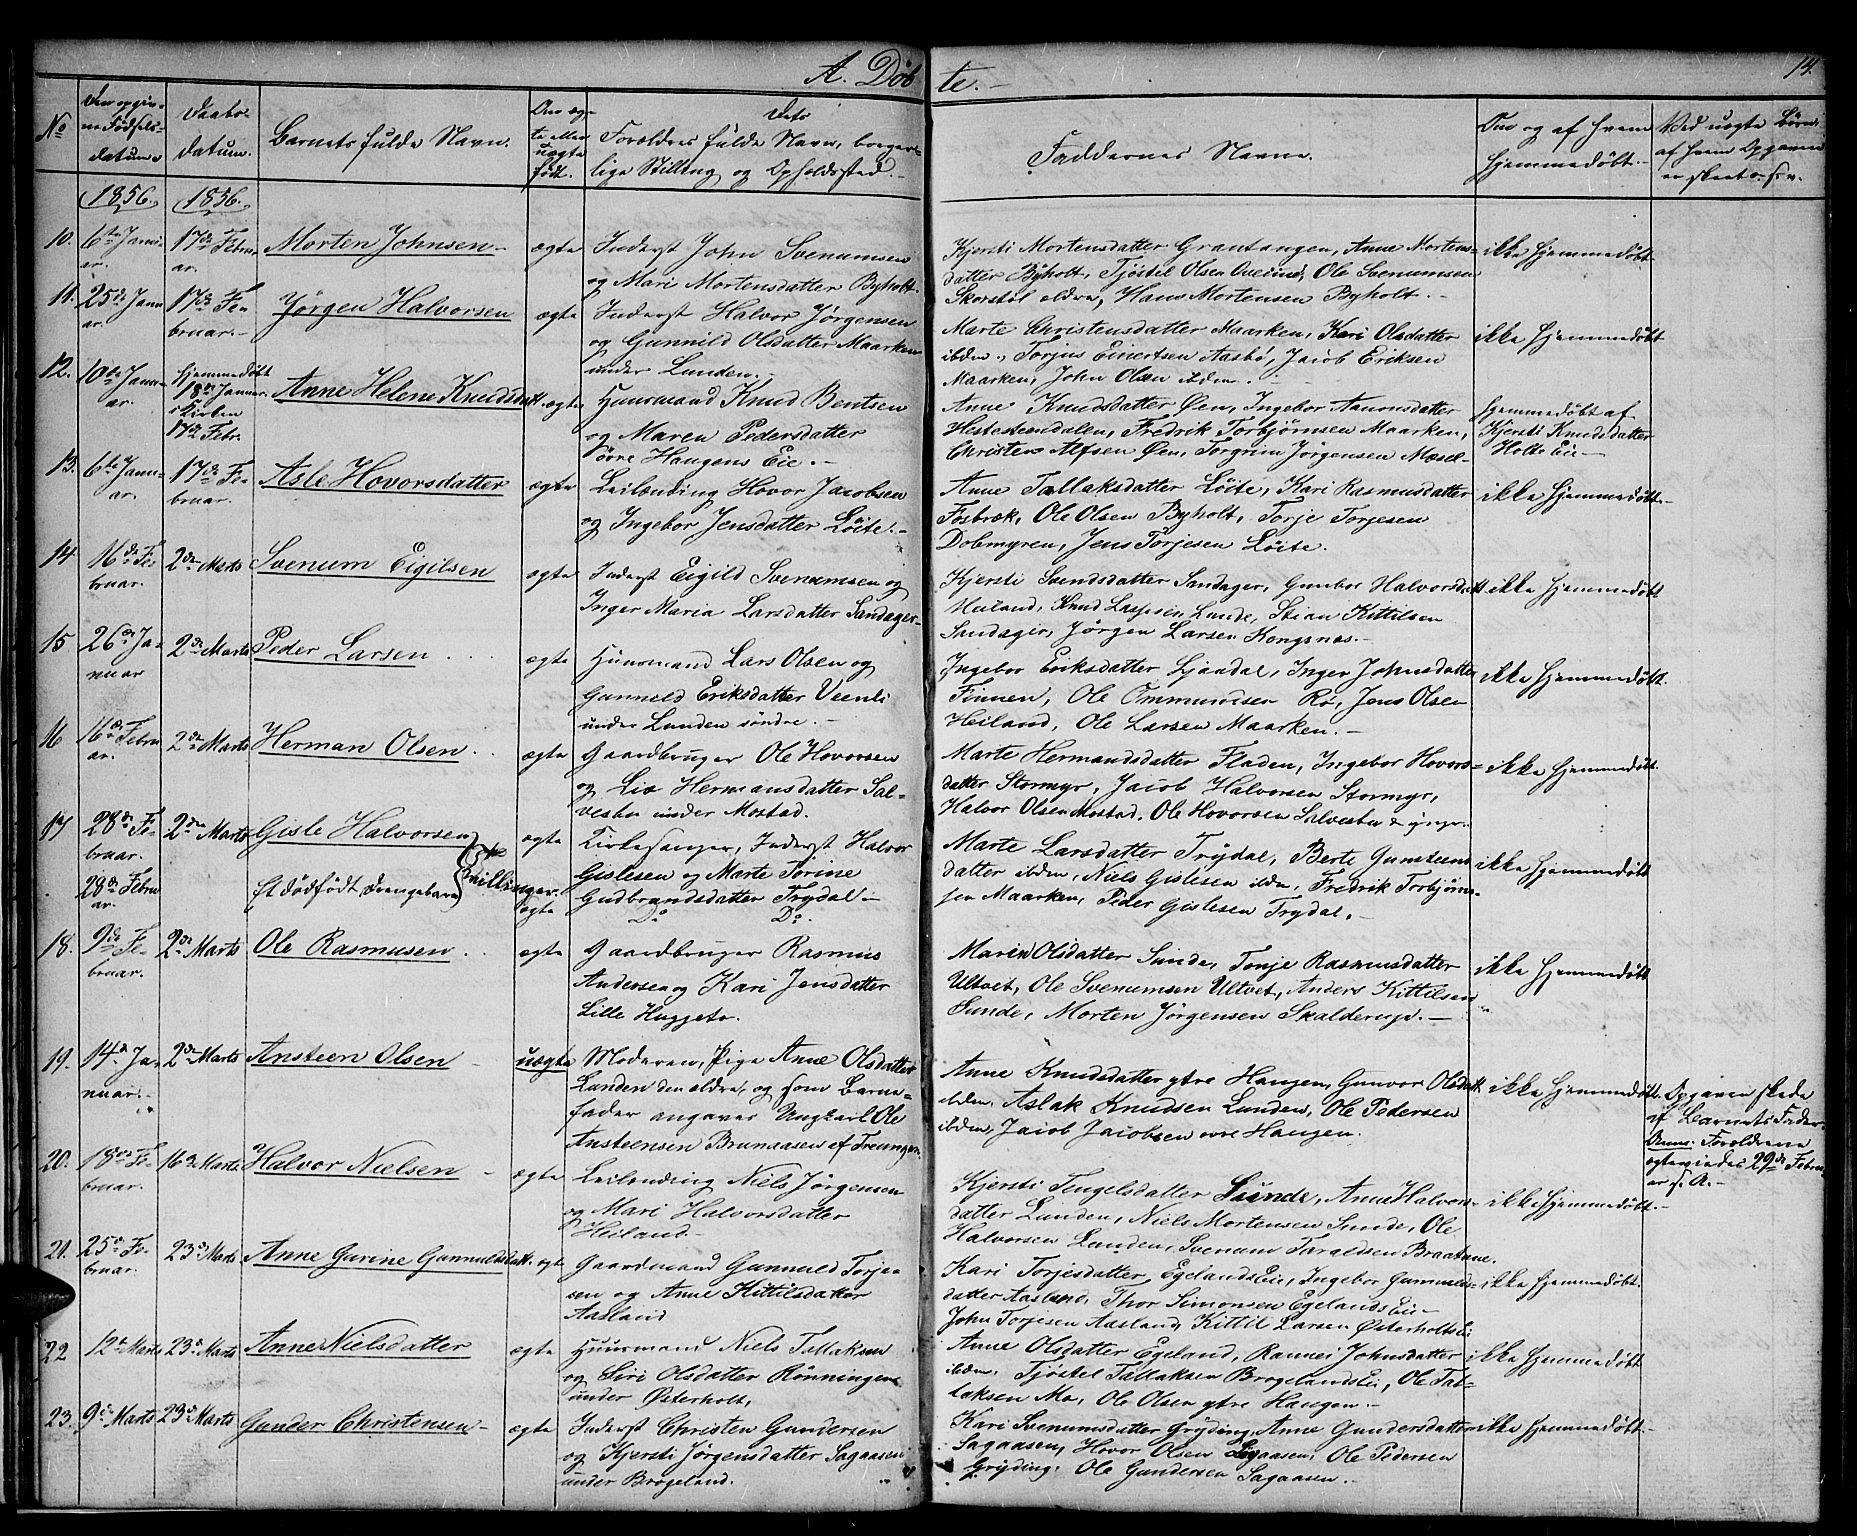 A. Døbte.
14.
No
Den opgivne Fødselsdatum
Daabsdatum.
Barnets fulde Navn.
Om ægte eller uægte født.
Forældres fulde Navn, borgerlige Stilling og Opholdssted.
Faddernes Navne.
Om og af hvem hjemmedøbt.
Ved uægte Børn af hvem Opgaven er skeet o. s. v.
1856. 1856.
10. 6te Januar. 17de Februar. Morten Johnsen ægte
Inderst John Svenumsen
og Mari Mortensdatter Byholt.
Kjersti Mortensdatter Grantangen, Anne Mortens-
datter Byholt, Tjöstil Olsen, Ole Svenumsen
Skorstøl ældre, Hans Mortensen Byholt.
ikke hjemmedøbt
11. 25de Januar. 17de Februar. Jørgen Halvorsen ægte
Inderst Halvor Jørgensen
og Gunnild Olsdatter Maarken
under Lunden.
Marte Christensdatter Maarken, Kari Olsdatter
ibdm., Torjus Einertsen Aasbø, Jacob Eriksen
Maarken, John Olsen ibdm.
ikke hjemmedøbt
12. 10de Januar. hjemmedøbt 18de Januar. i Kirken 17de Febr. Anne Helene Knudsdatt. ægte
Huusmand Knud Bentsen
og Maren Pedersdatter
övre Haugens Eie.
Anne Knudsdatter Øen, Ingebor Aanonsdatter
Hestesteendalen, Fredrik Torbjørnsen Maarken,
Christen Alfsen Øen, Torgrim Jörgensen Mæsel.
hjemmedøbt af
Kjersti Knudsdatter
Holte Eie
13. 6te Januar. 17de Februar. Asle Hovorsdatter ægte
Leilænding Hovor Jacobsen
og Ingebor Jensdatter Löite.
Anne Tallaksdatter Löite, Kari Rasmusdatter
Fosbræk, Ole Olsen Byholt, Torje Torjesen
Dobmyren, Jens Torjesen Löite.
ikke hjemmedøbt
14. 16de Februar. 2den Marts Svenum Eigilsen ægte
Inderst Eigild Svenumsen og
Inger Maria Larsdatter Sandager
Kjersti Svendsdatter Sandager, Gunbor Halvorsdatt
Heiland, Knud Lassesen Lunde, Stian Kittilsen
Sandager, Jörgen Larsen Kongsnæs.
ikke hjemmedøbt
15 26de Januar 2den Marts Peder Larsen ægte
Huusmand Lars Olsen og
Gunnild Eriksdatter Veenli
under Lunden söndre.
Ingebor Eriksdatter Ljaadal, Inger Johnsdatter
Finnen, Ole Ommundsen Rø, Jens Olsen
Heiland, Ole Larsen Maarken.
ikke hjemmedøbt.
16 16de Februar. 2den Marts Herman Olsen ægte
Gaardbruger Ole Hovorsen
og Liv Hermansdatter Sal-
vesten under Mostad.
Marte Hermandsdatter Fladen, Ingebor Hovors-
datter Stormyr, Jacob Halvorsen Stormyr,
Halvor Olsen Mostad, Ole Hovorsen Salvesten d. yngr.
ikke hjemmedøbt.
17 28de Februar. 2den Marts Gisle Halvorsen ægte
28de Februar. Et dödfödt Drengebarn Tvillinger. ægte
Kirkesanger, Inderst Halvor
Gislesen og Marte Torine
Gudbrandsdatter Trydal
Do. Do.
Marte Larsdatter Trydal, Berte Gunsteens-
datter ibdm, Niels Gislesen ibdm, Fredrik Torbjörn-
sen Maarken, Peder Gislesen Trydal.
ikke hjemmedøbt
18. 9de Februar. 2den Marts Ole Rasmusen ægte
Gaardbruger Rasmus
Andersen og Kari Jensdatter
Lille Huggeto.
Maren Olsdatter Sunde, Tonje Rasmusdatter
Ultvet, Ole Svenumsen Ultvet, Anders Kittilsen
Sunde, Morten Jørgensen Skalderup.
ikke hjemmedøbt
19. 14de Januar. 2den Marts Ansteen Olsen uægte
Moderen, Pige Anne Olsdatter
Lunden den ældre, og som Barne-
fader angaves Ungkarl Ole
Ansteensen Brunaasen af Treungen
Anne Knudsdatter ytre Haugen, Gunvor Olsdatt.
ibdm, Aslak Knudsen Lunden, Ole Pedersen
ibdm, Jacob Jacobsen övre Haugen.
ikke hjemmedøbt.
Opgaven skede
af Barnets Fader
Anm: Forældrene
ægteviedes 29de Febru-
ar s. A.
20. 18de Februar. 16de Marts Halvor Nielsen ægte
Leilænding Niels Jørgensen
og Mari Halvorsdatter
Heiland.
Kjersti Tengelsdatter Sunde, Anne Halvors-
datter Lunden, Niels Mortensen Sunde, Ole
Halvorsen Lunden, Svenum Taraldsen Braatane.
ikke hjemmedøbt.
21. 25de Februar. 23de Marts Anne Gurine Gunnuldsdatt. ægte
Gaardmand Gunnuld Torje-
sen og Anne Kittilsdatter
Aasland
Kari Torjesdatter Egelands Eie, Ingebor Gunnulds-
datter Aasland, Thor Simonsen Egelands Eie
John Torjesen Aasland, Kittil Larsen Østerholts Ei
ikke hjemmedøbt.
22 12te Marts 23de Marts Anne Nielsdatter ægte
Huusmand Niels Tallaksen
og Siri Olsdatter Rønningen
under Østerholt.
Anne Olsdatter Egeland, Rannei Johnsdatter
ibdm, Tjöstel Tallaksen Brøgelands Ei, Ole Tal-
laksen Mo, Ole Olsen ytre Haugen.
ikke hjemmedøbt
23. 9de Marts 23de Marts Gunder Christensen ægte
Inderst Christen Gundersen
og Kjersti Jørgensdatter Sagaasen
under Brøgeland.
Kari Svenumsdatter Gryding, Anne Gundersdatter
Sagaasen, Hovor Olsen Sagaasen, Ole Pedersen
Gryding, Ole Gundersen Sagaasen.
ikke hjemmedøbt.